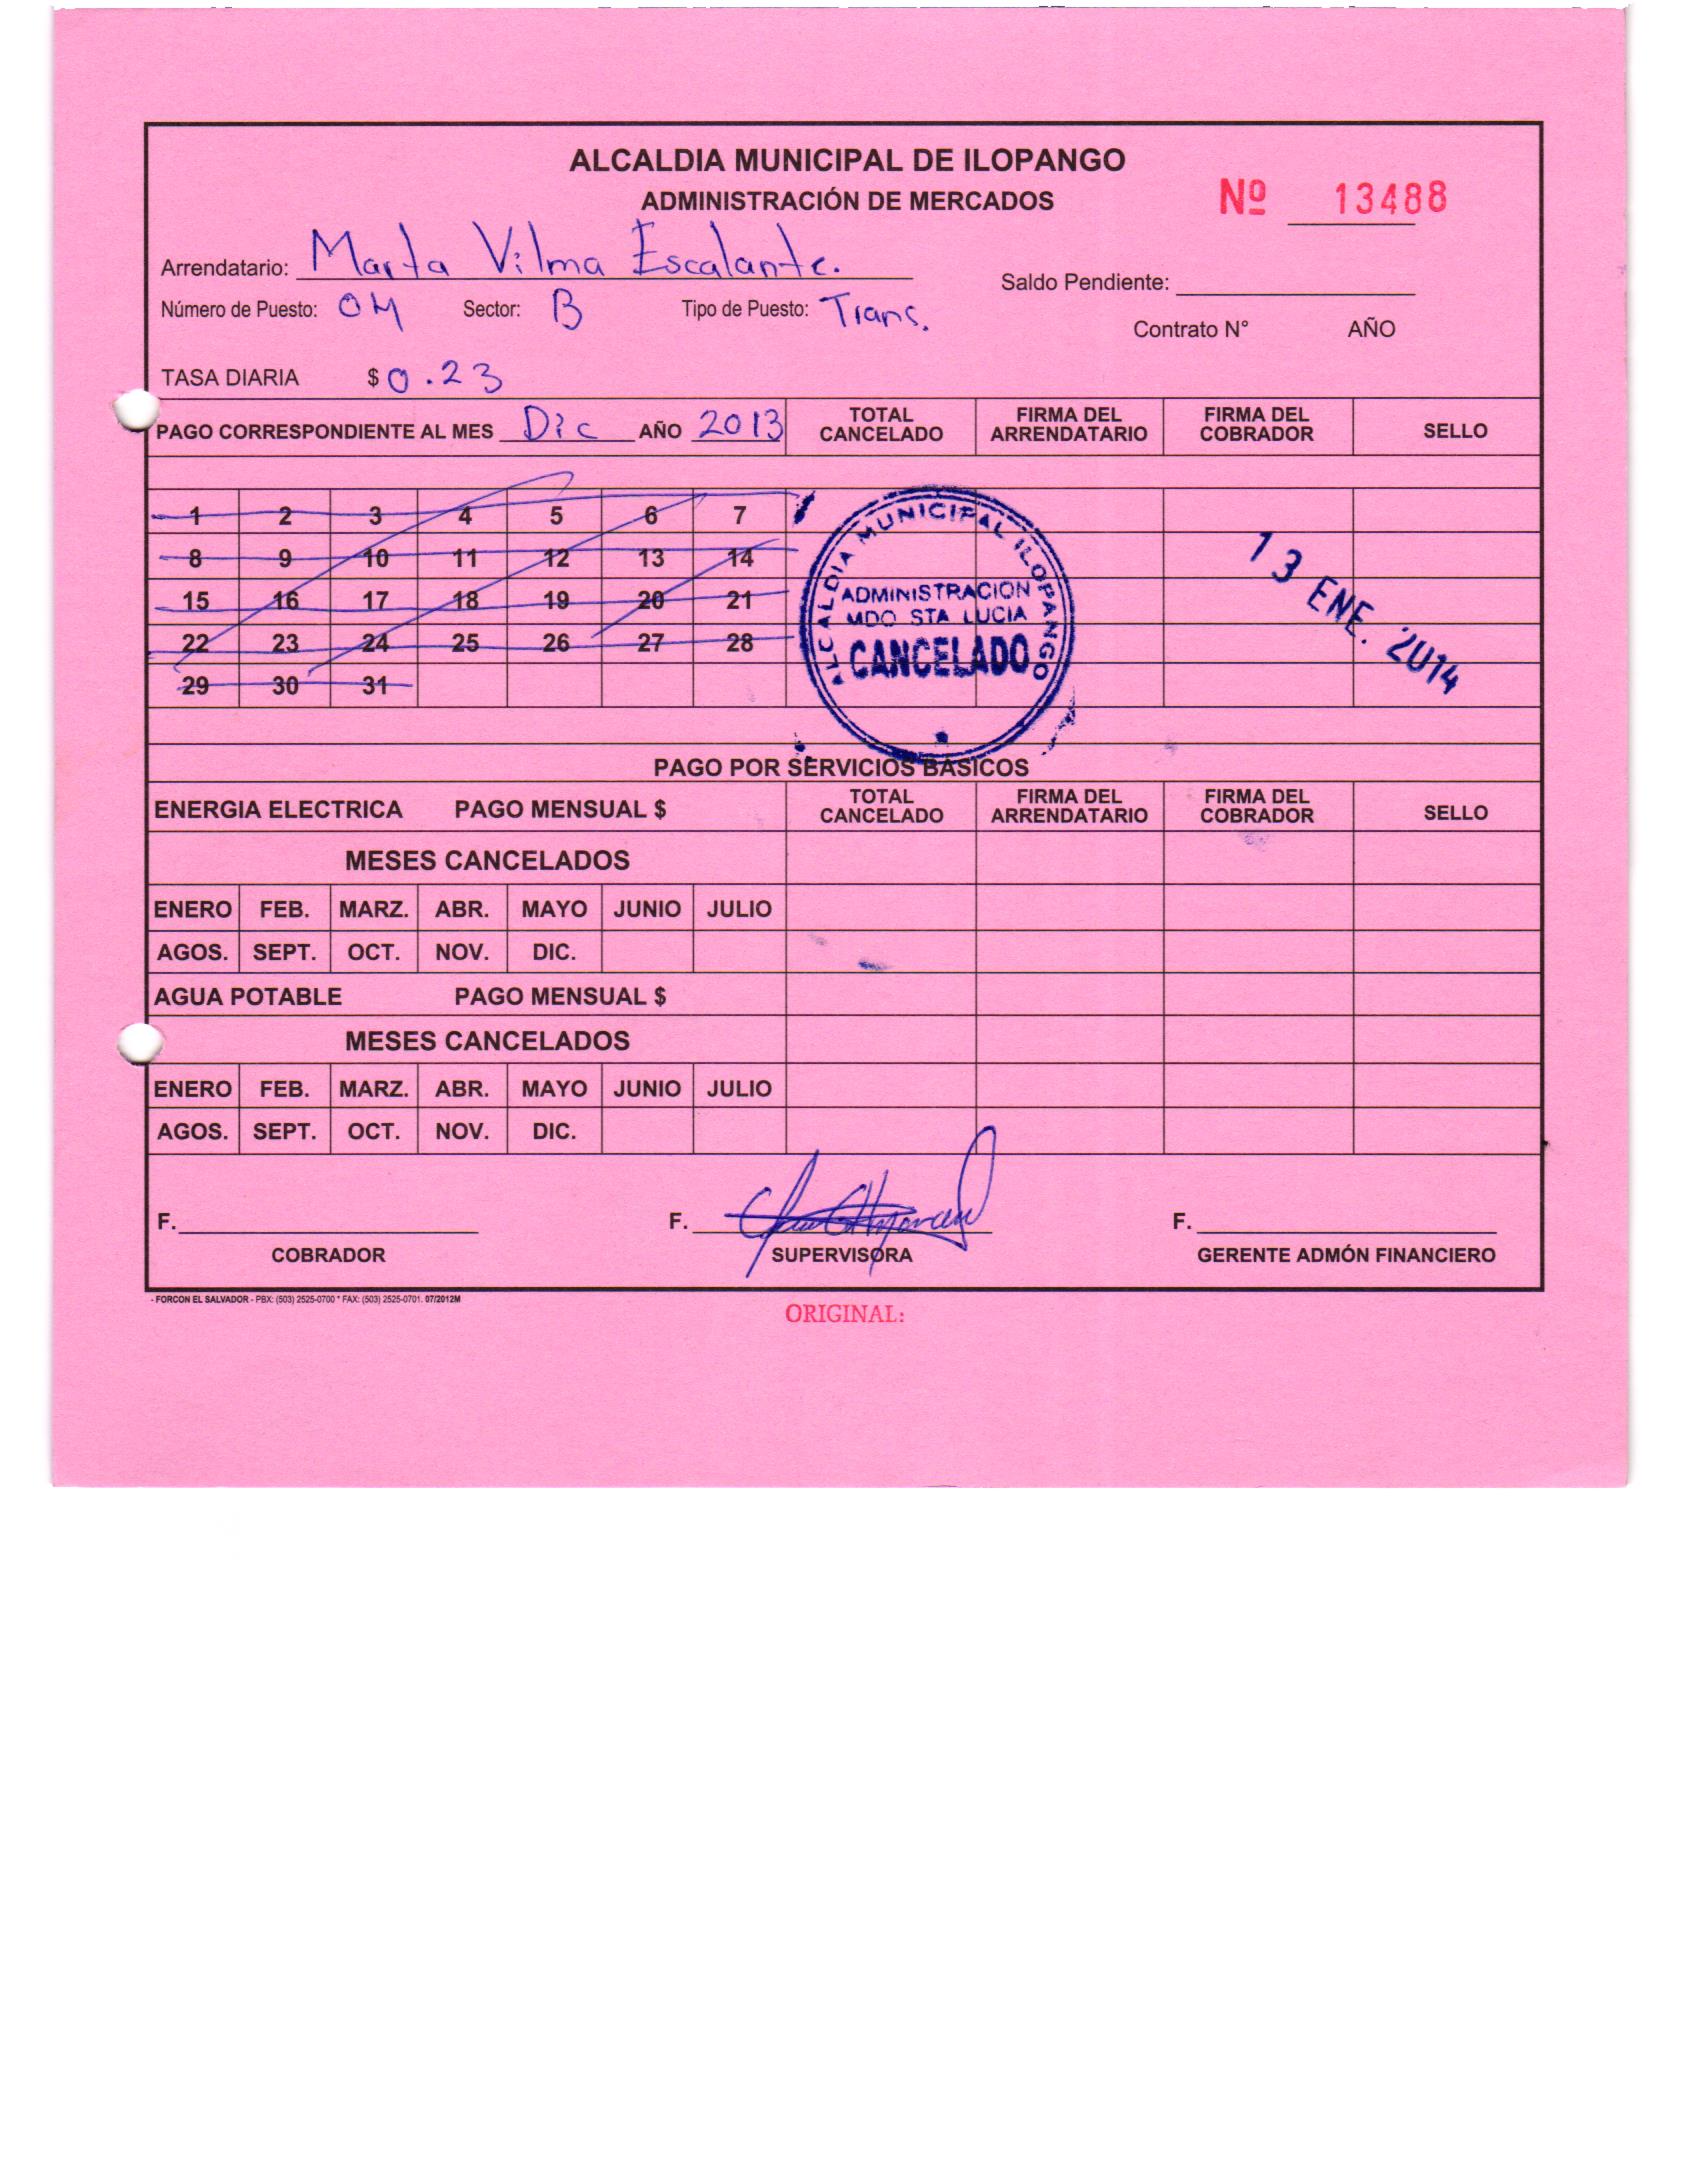 ALCALDIA MUNICIPAL DE ILOPANGO
ADMINISTRACIÓN DE MERCADOS
Nº 13488
Arrendatario: Marta Vilma Escalante.
Saldo Pendiente:
Número de Puesto: 04 Sector: B Tipo de Puesto: Trans.
Contrato N° AÑO
TASA DIARIA $ 0.23
PAGO CORRESPONDIENTE AL MES Dic AÑO 2013 TOTAL CANCELADO FIRMA DEL ARRENDATARIO FIRMA DEL COBRADOR SELLO
1 2 3 4 5 6 7
8 9 10 11 12 13 14
15 16 17 18 19 20 21
22 23 24 25 26 27 28
29 30 31
ALCALDIA MUNICIPAL ILOPANGO
ADMINISTRACION
MDO STA LUCIA
CANCELADO
13 ENE. 2014
PAGO POR SERVICIOS BASICOS
ENERGIA ELECTRICA PAGO MENSUAL $ TOTAL CANCELADO FIRMA DEL ARRENDATARIO FIRMA DEL COBRADOR SELLO
MESES CANCELADOS
ENERO FEB. MARZ. ABR. MAYO JUNIO JULIO
AGOS. SEPT. OCT. NOV. DIC.
AGUA POTABLE PAGO MENSUAL $
MESES CANCELADOS
ENERO FEB. MARZ. ABR. MAYO JUNIO JULIO
AGOS. SEPT. OCT. NOV. DIC.
F. F. F.
COBRADOR SUPERVISORA GERENTE ADMÓN FINANCIERO
- FORCON EL SALVADOR - PBX: (503) 2525-0700 * FAX: (503) 2525-0701. 07/2012M
ORIGINAL: